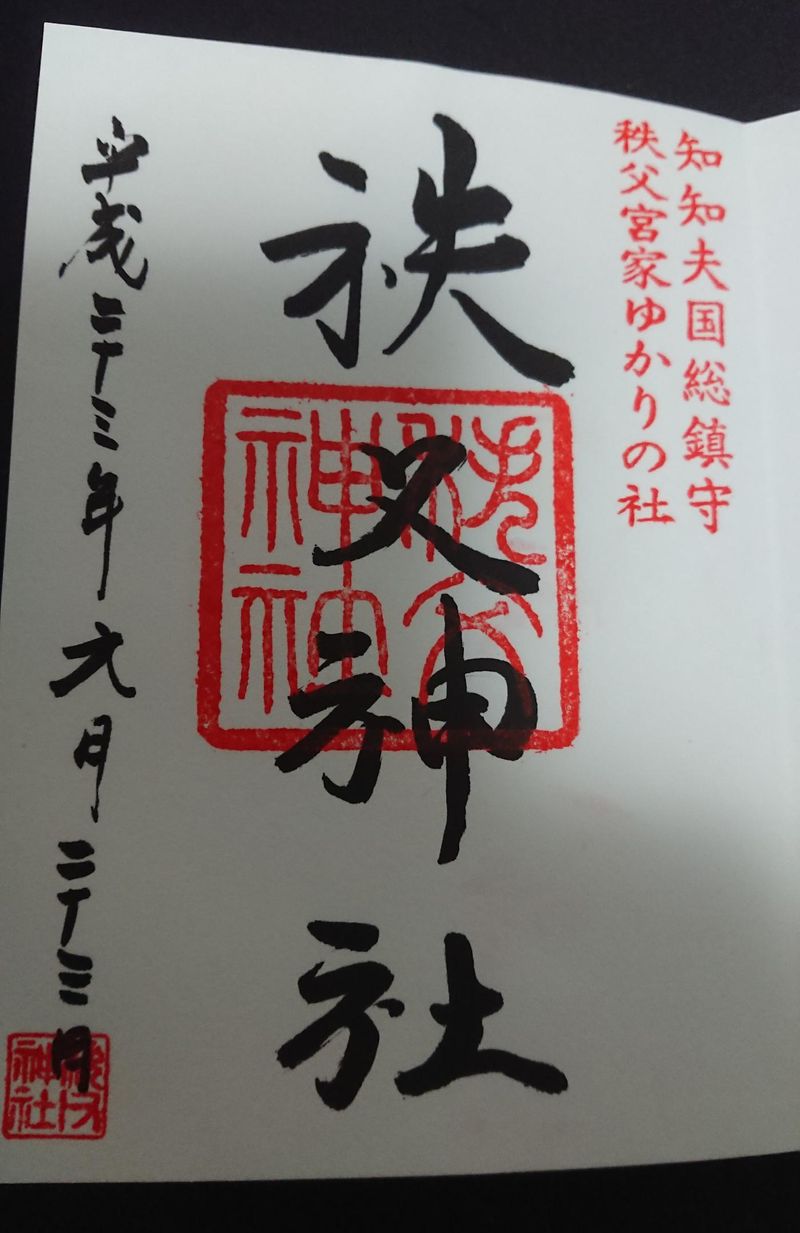 知知夫国総鎮守
秩父宮家ゆかりの社
秩父神社
秩父神社
平成二十三年六月二十三日
秩父神社